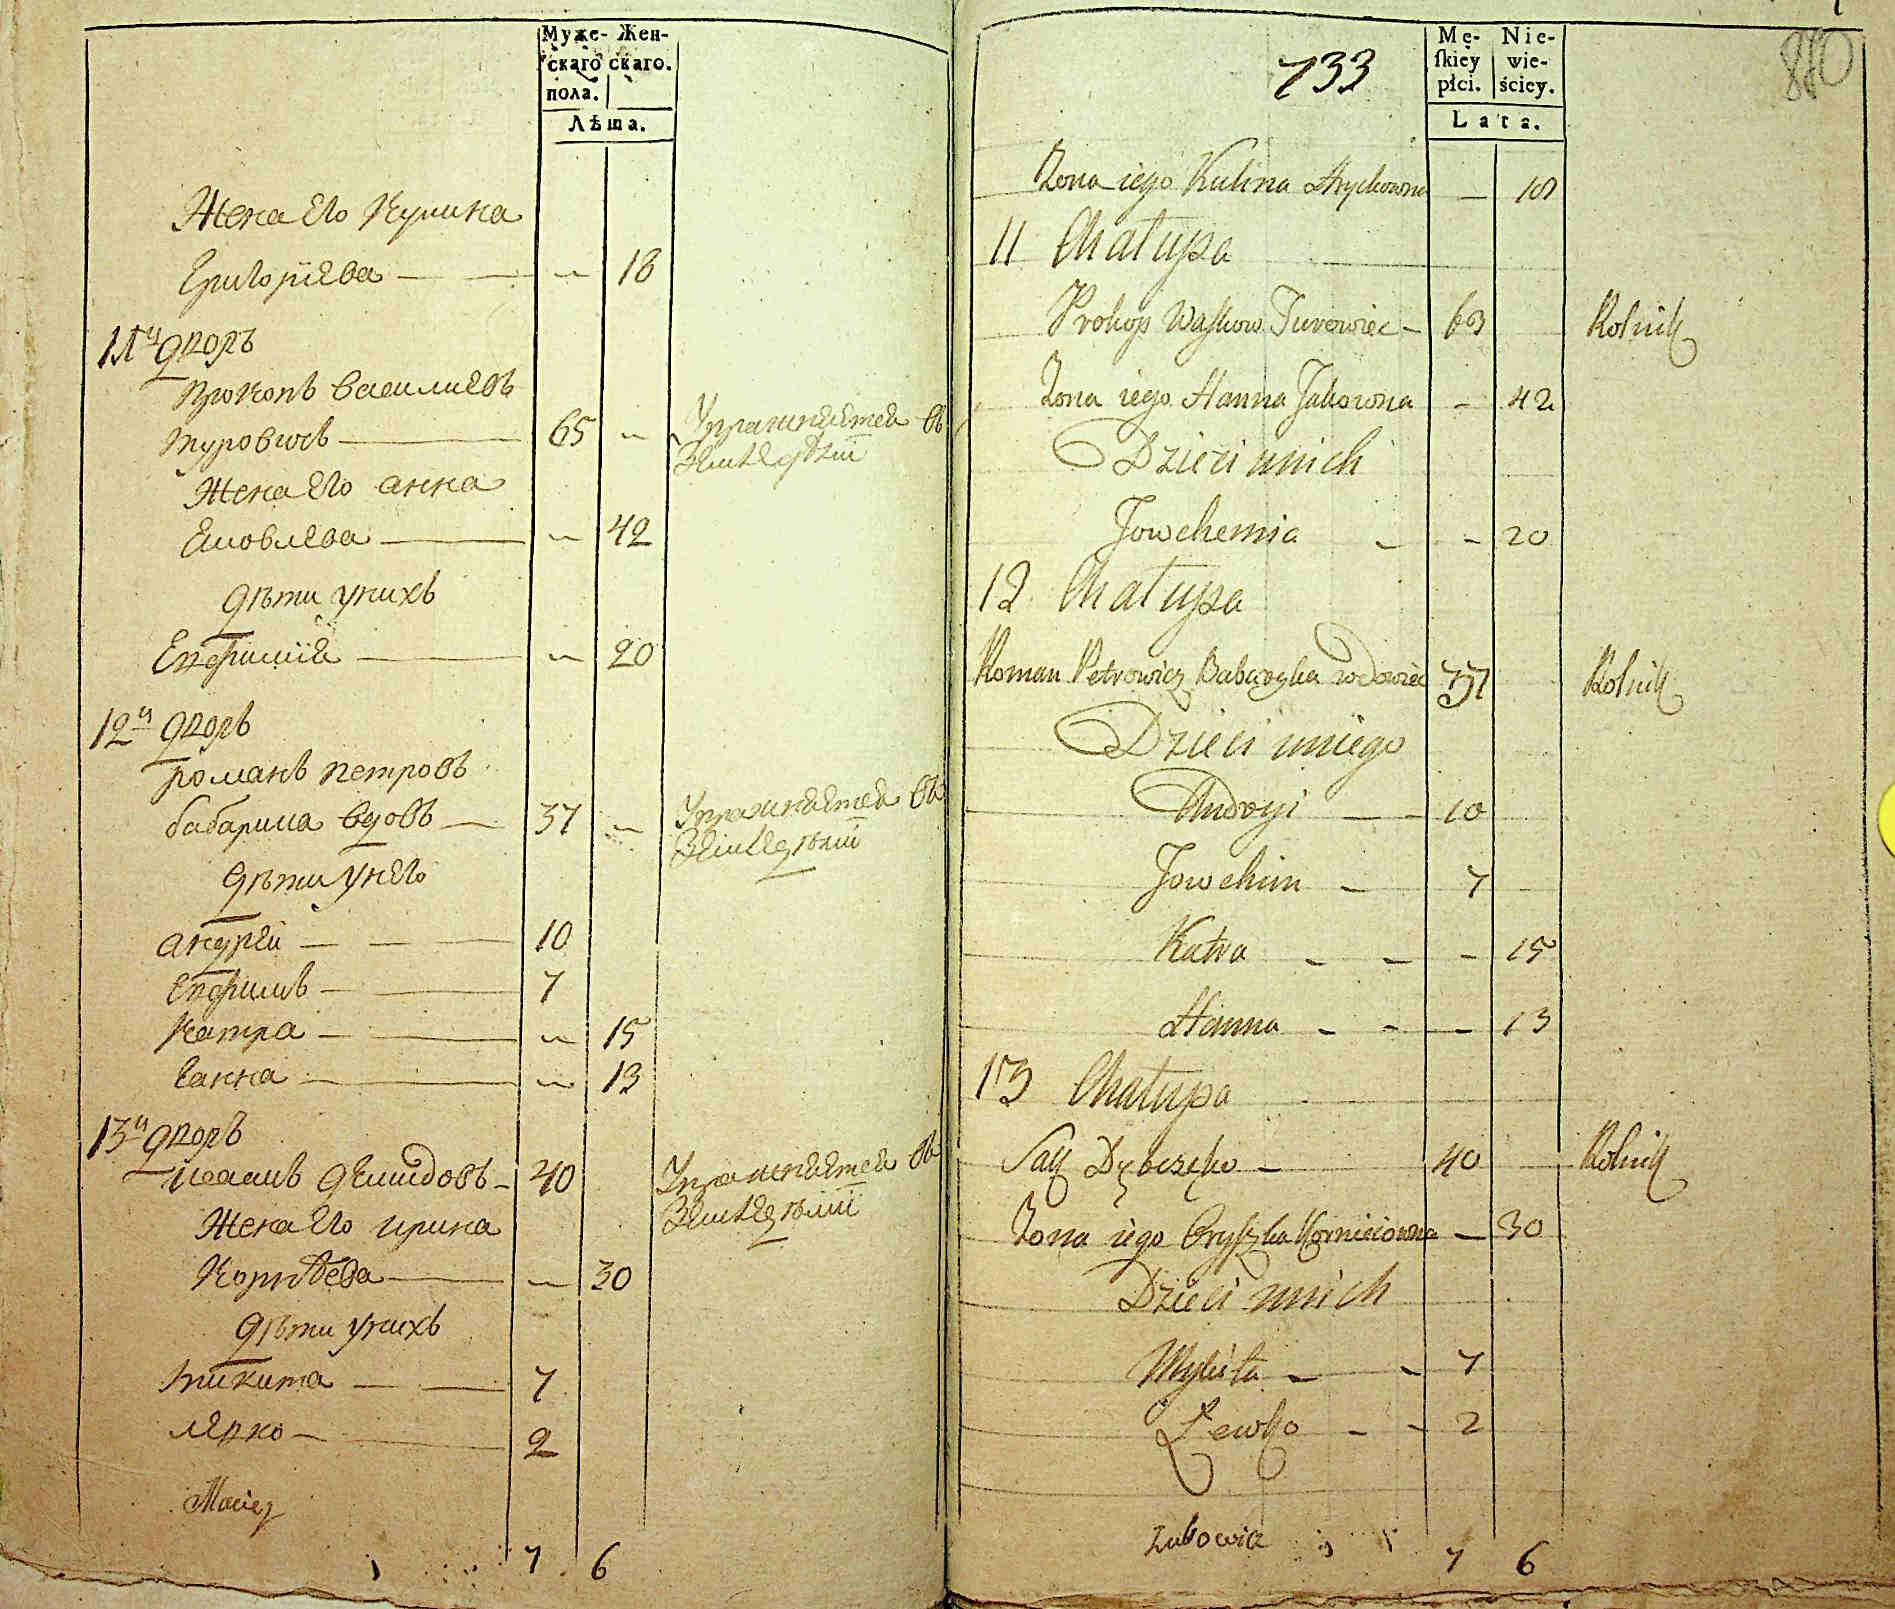 Муже- Жен-
скаго скаго.
пола.
Лѣта.
Жена Его Кулина
Григорiева — — 18
11й дворъ
Прокопъ Василиевъ
Туровецъ — 65 — Упражняется въ
Земледѣлiи
Жена Его анна
Яковлева — — 42
дѣти унихъ
Евфимiя — — 20
12й дворъ
романъ петровъ
бабарика вдовъ — 37 — Упражняется въ
Земледѣлiи
дѣти Унего
андрей — — 10
Евфимъ — 7
Катра — — 15
Ганна — — 13
13й дворъ
Исаакъ демидовъ — 40 Упражняется въ
Земледѣлiи
Жена Его ирина
Корнѣева — — 30
дѣти унихъ
никита — — 7
левко — 2
Maciey
7 6
733
880
Mę- Nie-
ſkiey wie-
płci. ściey.
Lata.
Zona iego Kulina Hrychowna — 18
11 Chałupa
Prokop Waſkow Turowiec — 63 Rolnik
Zona iego Hanna Jakowna — 42
Dzieci unich
Jowchemia — — 20
12 Chałupa
Roman Petrowicz wdowiec 37 Rolnik
Dzieci uniego
Andryi — — 10
Jowchim — 7
Katra — — — 15
Hanna — — — 13
13 Chałupa
Sak — 40 Rolnik
Zona iego Oryſzka Kornieiowna — 30
Dzieci unich
Mykita — — 7
Lewko — — 2
Zubowicz
7 6